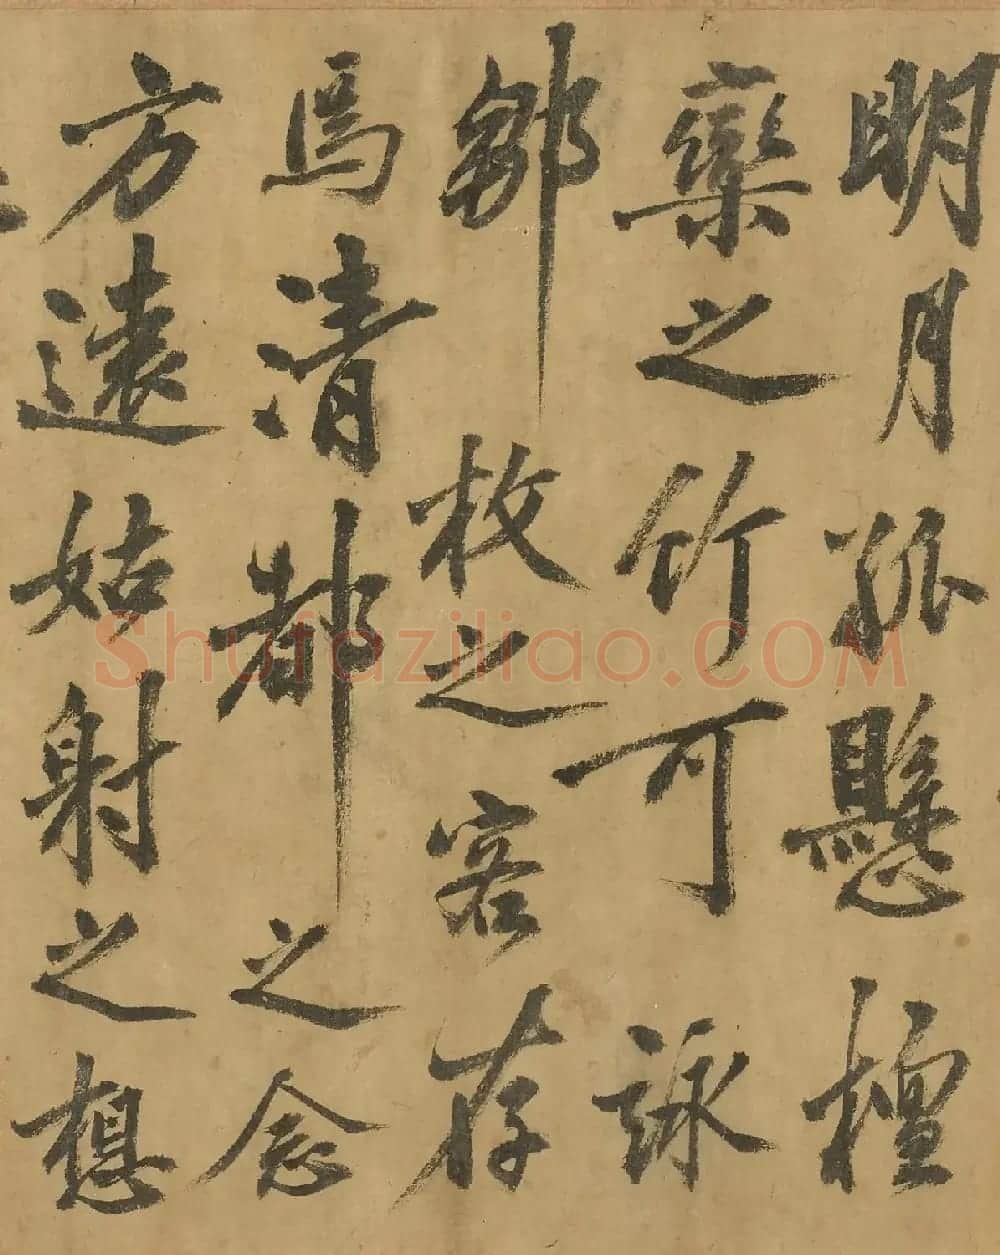 明月孤懸檀
欒之竹可詠
鄒枚之客存
焉清都之念
方遠姑射之想
Shufaziliao.COM